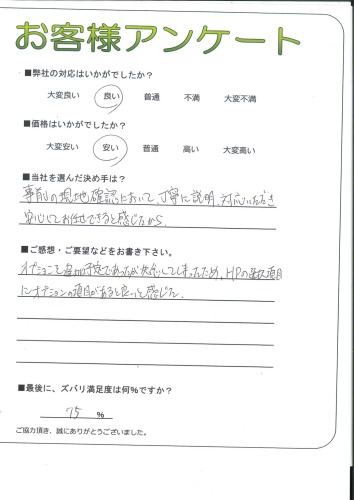 お客様アンケート
■弊社の対応はいかがでしたか？
大変良い 良い 普通 不満 大変不満
■価格はいかがでしたか？
大変安い 安い 普通 高い 大変高い
■当社を選んだ決め手は？
事前の現地確認において、丁寧に説明、対応いただき
安心してお任せできると感じたから。
■ご感想・ご要望などをお書き下さい。
オプションを追加予定であったが失念してしまったため、HPの選択項目
にオプションの項目があると良いと感じた。
■最後に、ズバリ満足度は何%ですか？
75 %
ご協力頂き、誠にありがとうございました。